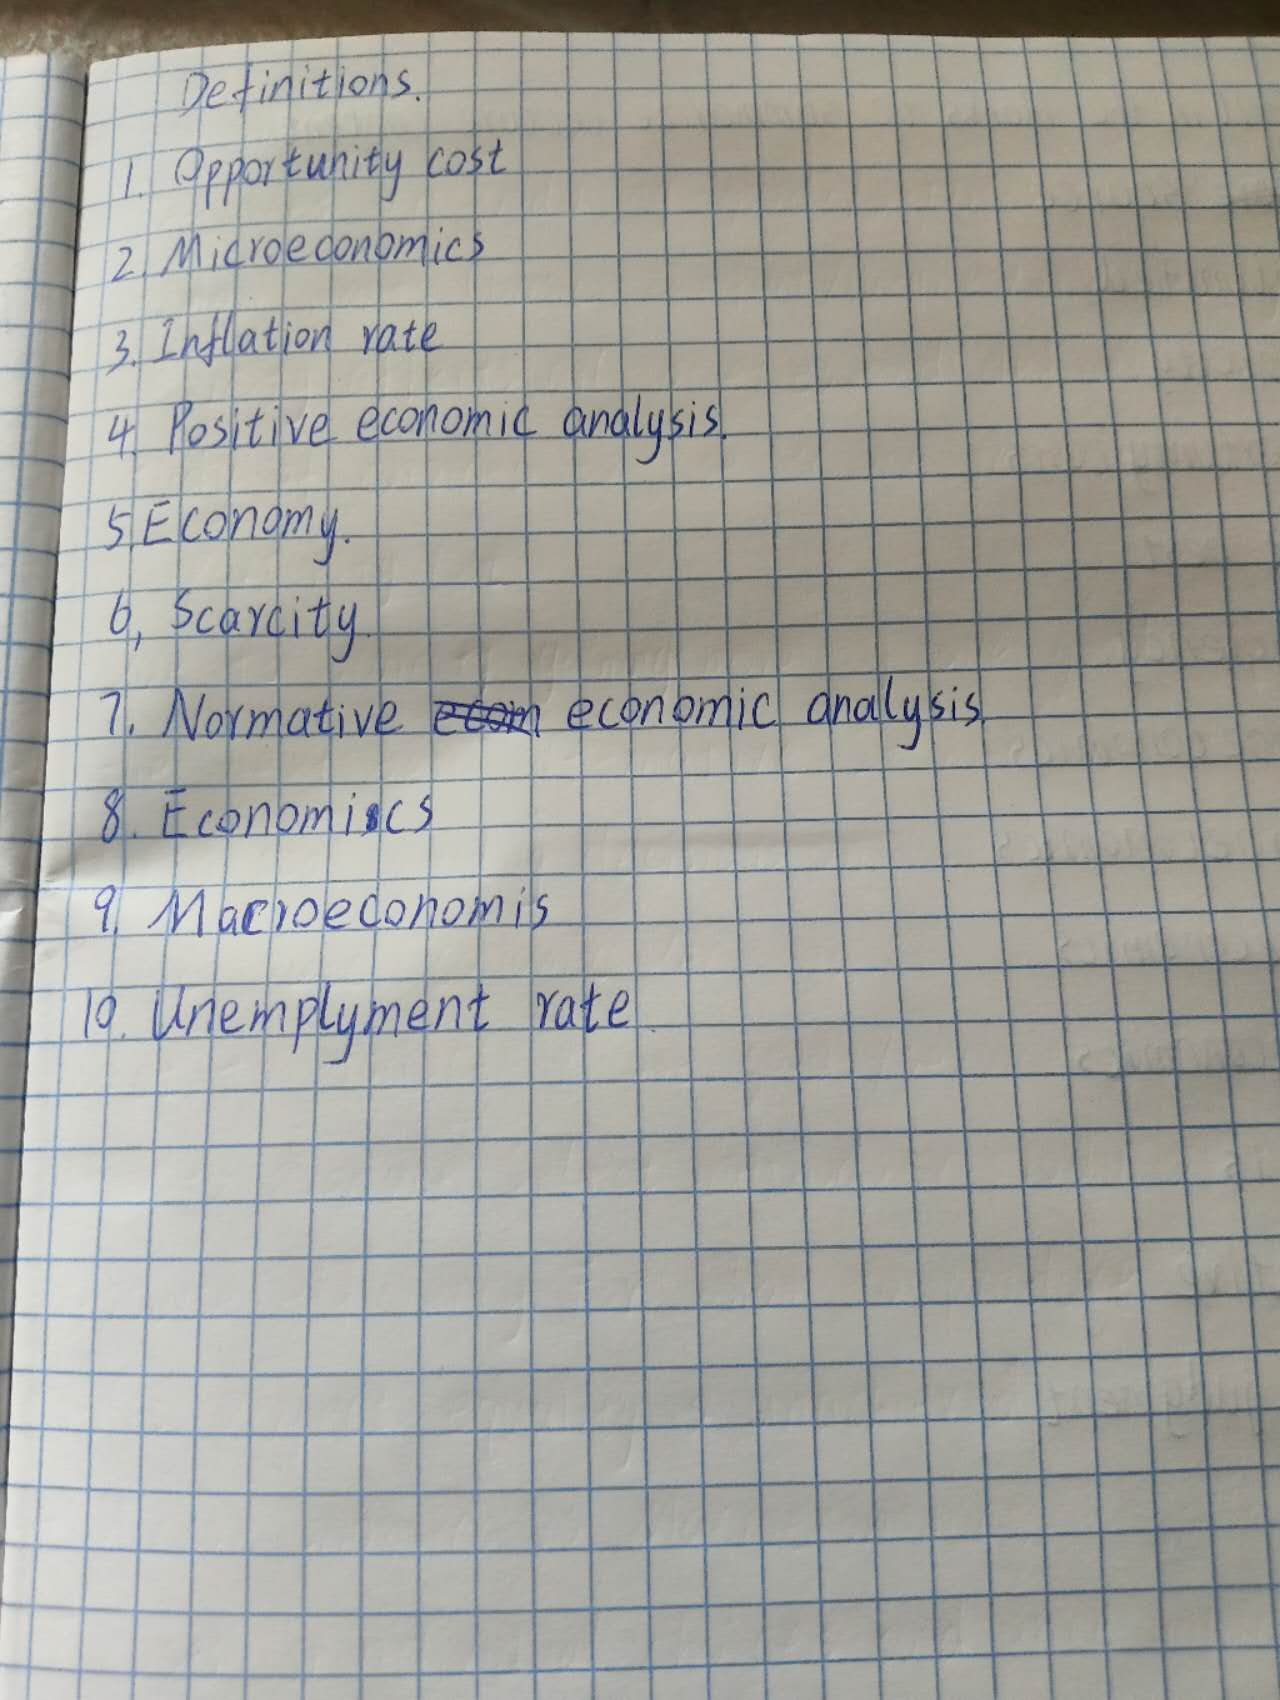 Definitions.
1. Opportunity cost
2. Microeconomics
3. Inflation rate
4. Positive economic analysis.
5. Economy.
6, Scarcity.
7. Normative economic analysis.
8. Economiscs
9. Macroeconomis
10. Unemplyment rate.